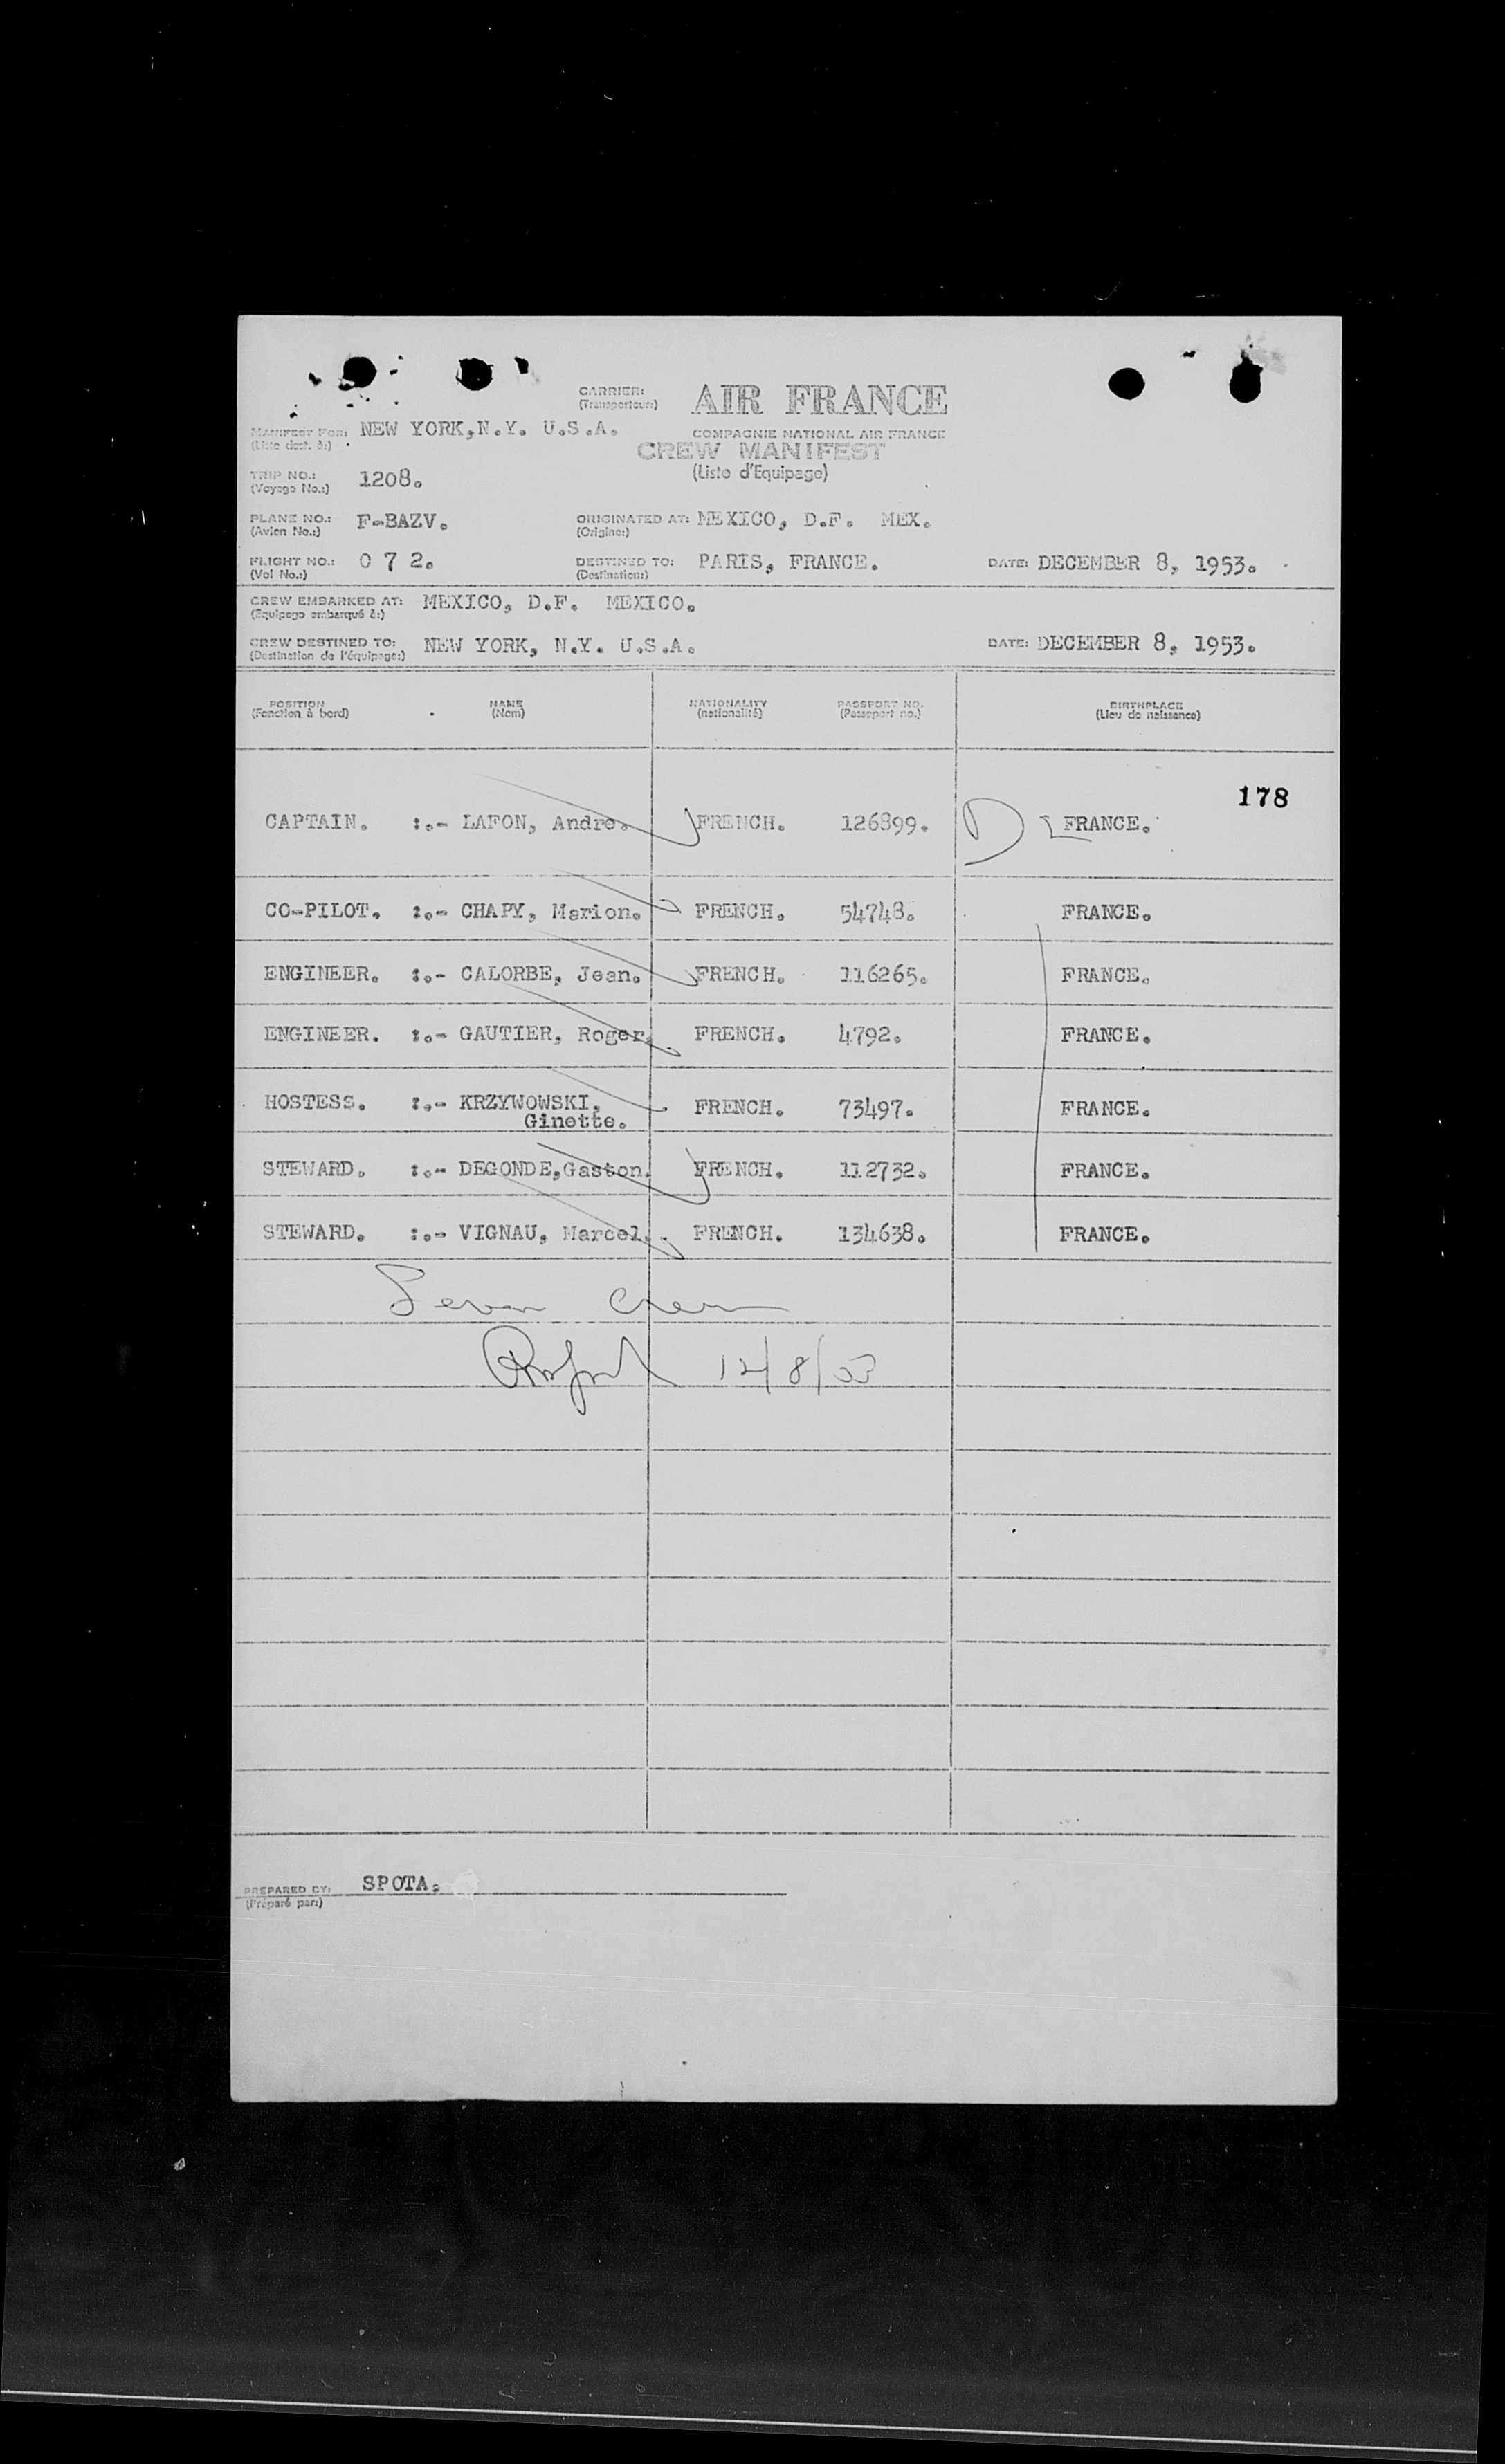 CARRIER: AIR FRANCE
(Transporteur:)
MANIFEST FOR: NEW YORK,N.Y. U.S.A. COMPAGNIE NATIONAL AIR FRANCE
(Liste dest. à:) CREW MANIFEST
TRIP NO.: 1208. (Liste d'Equipage)
(Voyage No.:)
PLANE NO.: F-BAZV. ORIGINATED AT: MEXICO, D.F. MEX.
(Avion No.:) (Origine:)
FLIGHT NO.: 0 7 2. DESTINED TO: PARIS, FRANCE. DATE: DECEMBER 8, 1953.
(Vol No.:) (Destination:)
CREW EMBARKED AT: MEXICO, D.F. MEXICO.
(Equipage embarqué à:)
CREW DESTINED TO: NEW YORK, N.Y. U.S.A. DATE: DECEMBER 8, 1953.
(Destination de l'équipage:)
POSITION NAME NATIONALITY PASSPORT NO. BIRTHPLACE
(Fonction à bord) (Nom) (nationalité) (Passeport no.) (Lieu de naissance)
178
CAPTAIN. :.- LAFON, Andre. FRENCH. 126899. D FRANCE.
CO-PILOT. :.- CHAPY, Marion. FRENCH. 54748. FRANCE.
ENGINEER. :.- CALORBE, Jean. FRENCH. 116265. FRANCE.
ENGINEER. :.- GAUTIER, Roger. FRENCH. 4792. FRANCE.
HOSTESS. :.- KRZYWOWSKI, FRENCH. 73497. FRANCE.
Ginette.
STEWARD. :.- DEGONDE,Gaston. FRENCH. 112732. FRANCE.
STEWARD. :.- VIGNAU, Marcel. FRENCH. 134638. FRANCE.
Seven Crew
12/8/53
PREPARED BY: SPOTA.
(Préparé par:)